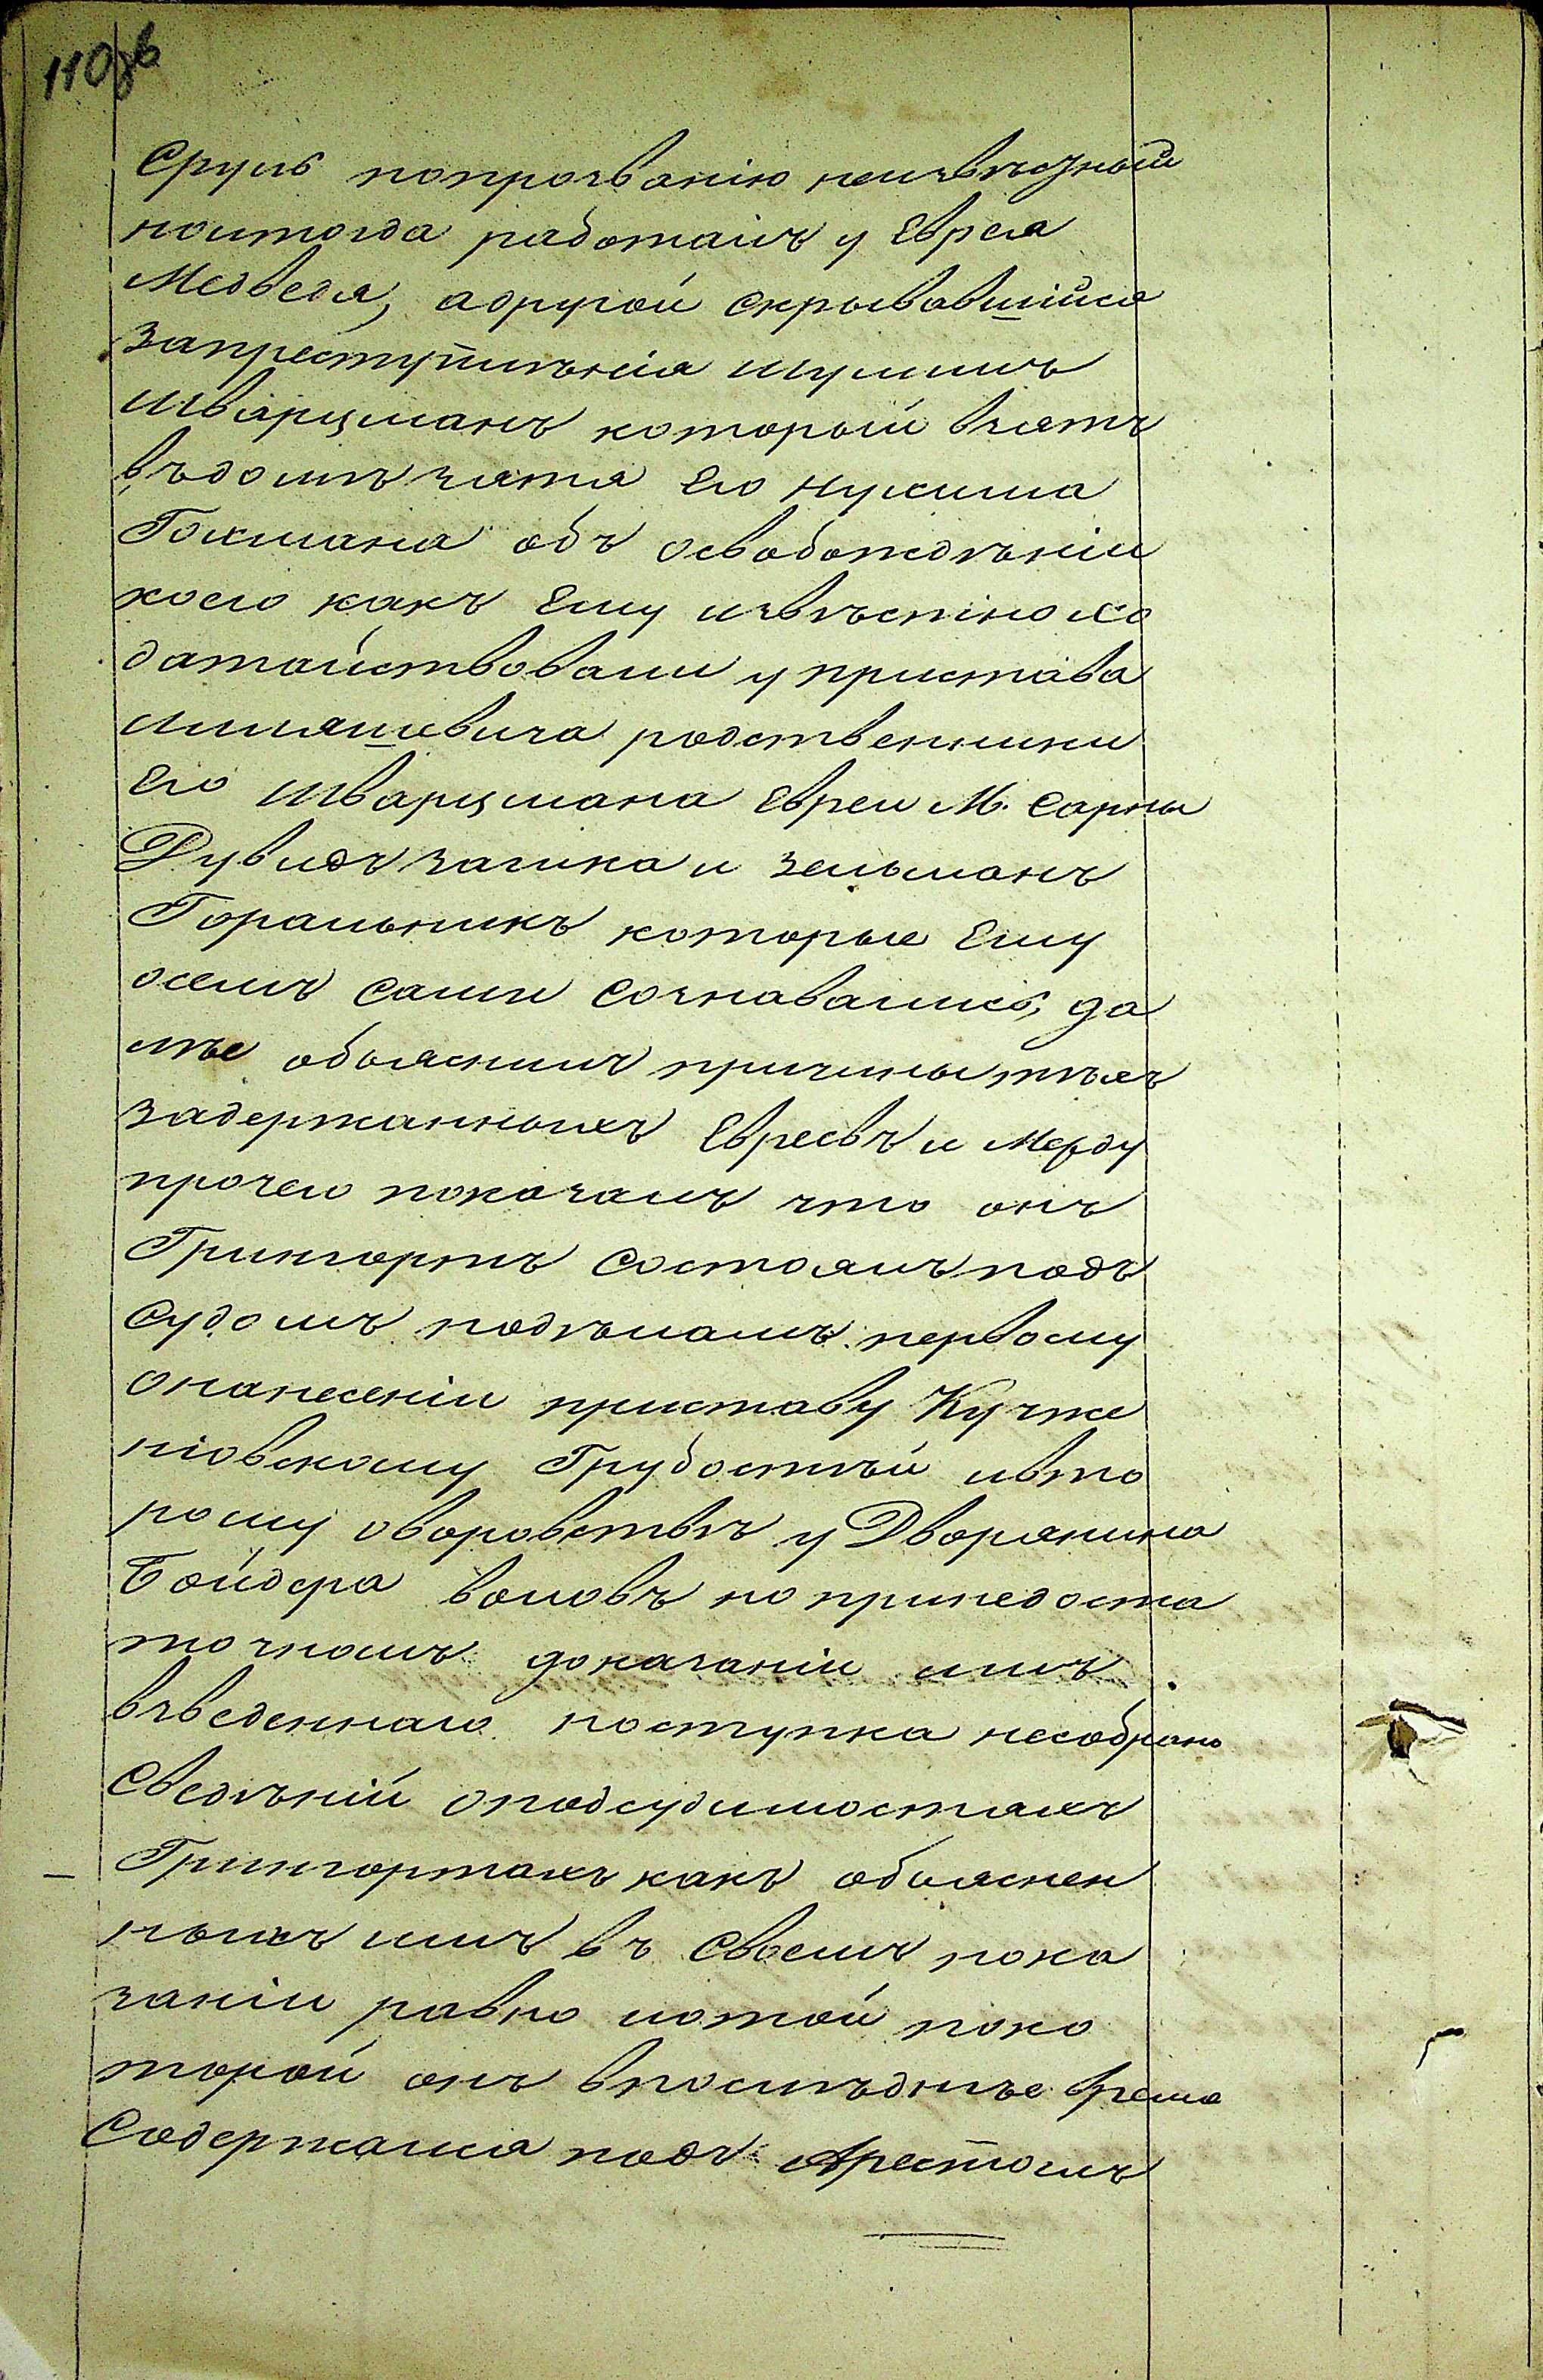 110об
Сруль попрозванію неизвѣстный
ноитогда работалъ у Еврея
Медведя, адругой скрывавшійся
запреступлѣнія шулимъ
шварцманъ который взятъ
въдомѣ зятя Его Нухима
Гохмана объ освобождѣніи
коего какъ Ему извѣстно хо
датайствовали у пристава
родственники
Его шварцмана Евреи М. Сарны
Дувидъ зашка и зельманъ
Горальникъ которые Ему
осемъ сами сознавались, да
лѣе объяснилъ причины тѣхъ
задержанныхъ Евреевъ и Между
прочемъ показалъ что онъ
Грингортъ состоялъ подъ
судомъ подѣламъ первому
онанесеніи приставу Кучже
ніовскому Грубостѣй ивто
рому оворовствѣ у Дворянина
Бойдера воловъ но принедоста
точномъ доказаніи имъ
възведеннаго поступка несобрано
сведѣній оподсудимостяхъ
Грингортахъ какъ объяснен
ныхъ имъ въ своемъ пока
заніи равно ютой поко
торой онъ впослѣднѣе время
содержался подъ Арестомъ